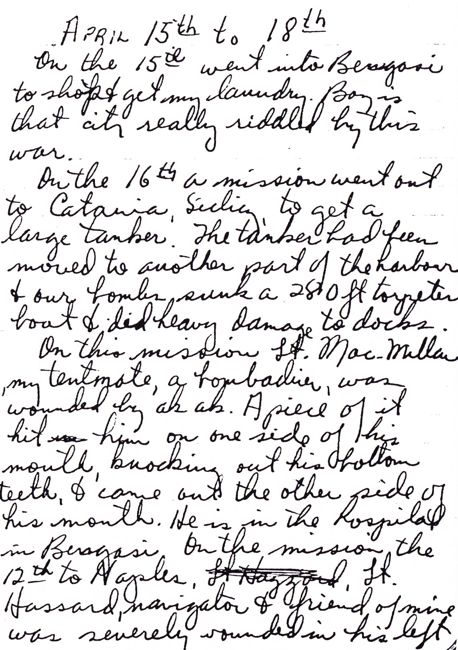 APRIL 15th to 18th
On the 15th went into Bengasi
to shop & get my laundry. Boy is
that city really riddled by this
war.
On the 16th a mission went out
to Catania, Sicily, to get a
large tanker. The tanker had been
moved to another part of the harbour
& our bombs sunk a 280 ft torpeter
boat & did heavy damage to docks.
On this mission Lt. Mac-Millan
my tentmate, a bombadier, was
wounded by ak ak. A piece of it
hit him on one side of his
mouth, knocking out his bottom
teeth, & came out the other side of
his mouth. He is in the hospital
in Bengasi. On the mission the
12th to Naples, Lt Hazzard, Lt.
Hassard, navigator & friend of mine
was severely wounded in his left